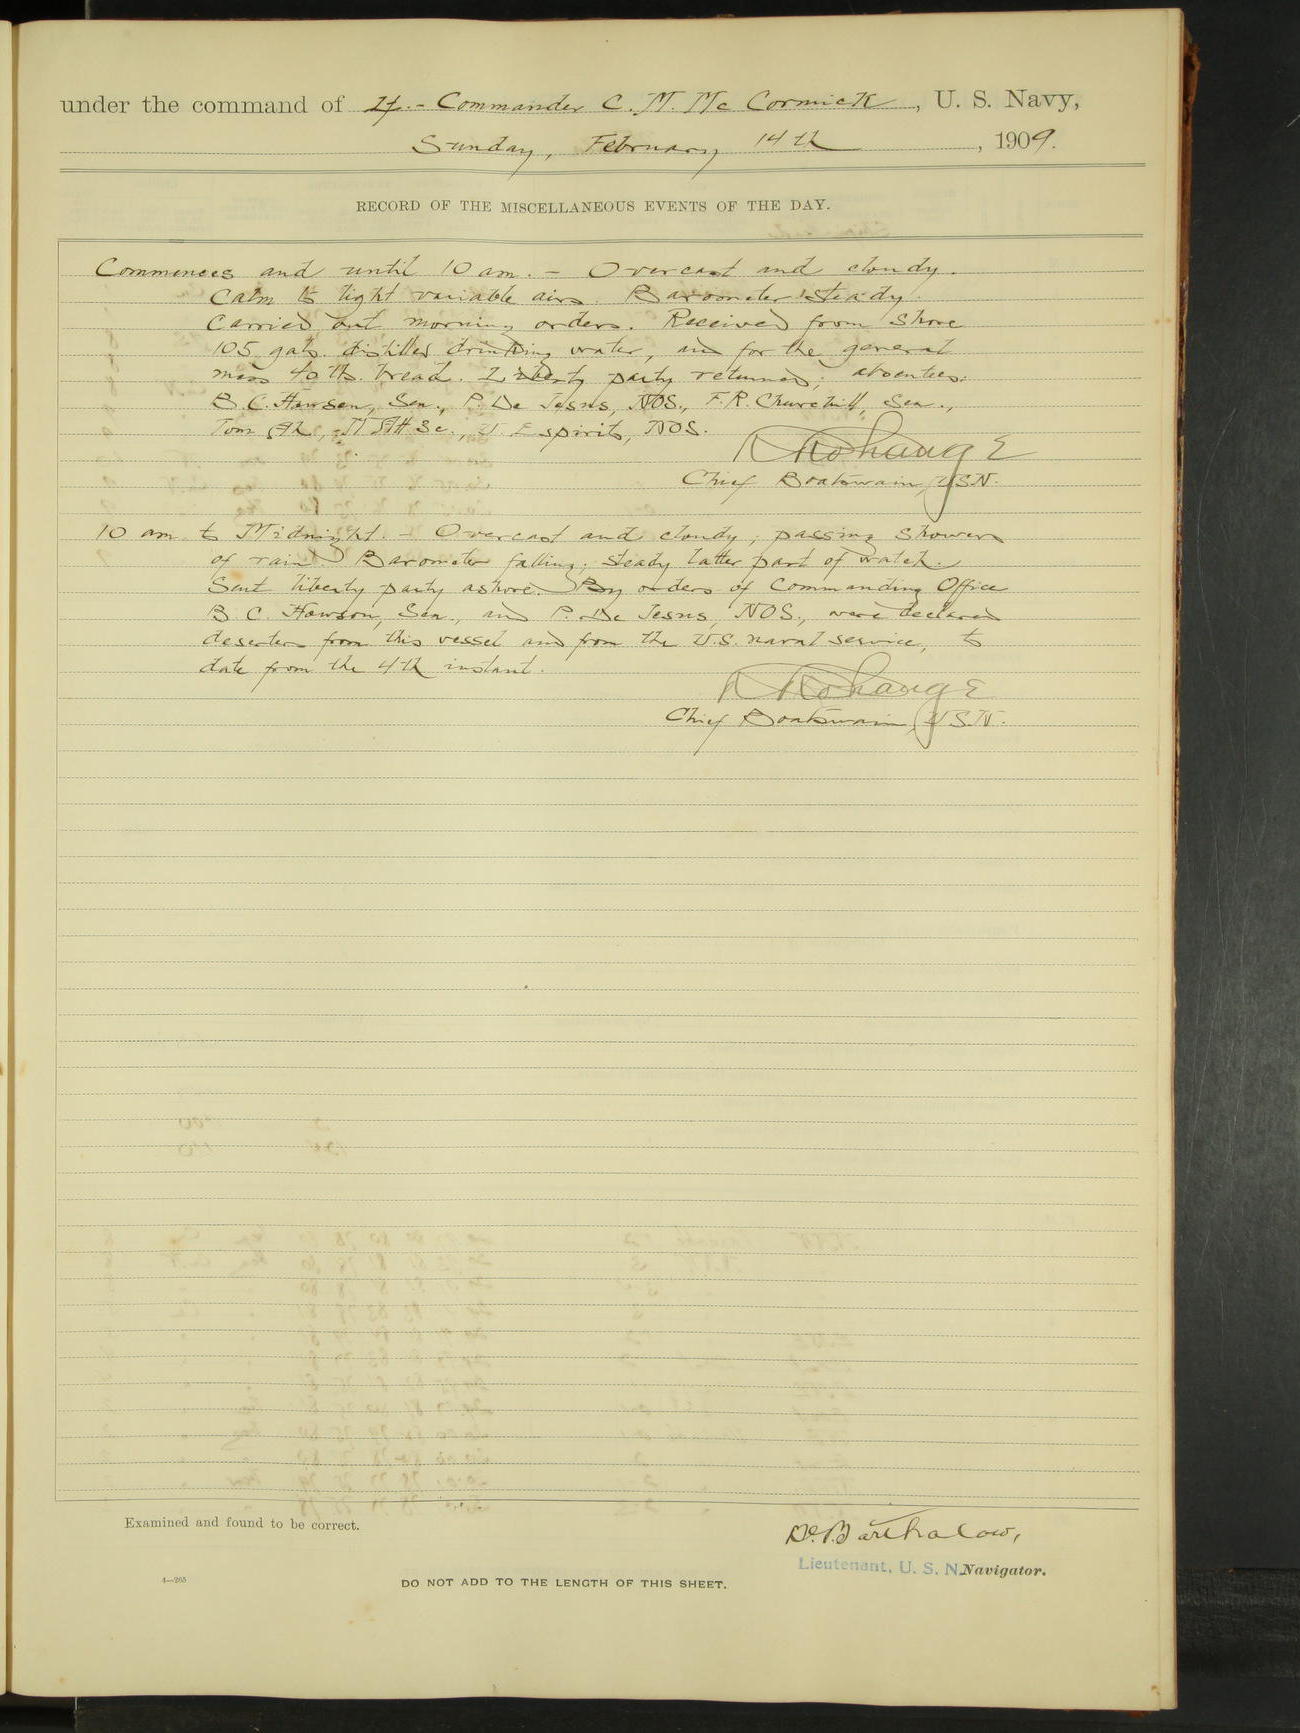 under the command of Lt.- Commander C. M. Mc Cormick, U. S. Navy,
Sunday, February 14th, 1909.
RECORD OF THE MISCELLANEOUS EVENTS OF THE DAY.
Commences and until 10 am. - Overcast and cloudy.
Calm to light variable airs. Barometer steady.
Carried out morning orders. Received from shore
105 gals. distilled drinking water, and for the general
mess 40 lbs. bread. Liberty party returned; absentees:
B. C. Hewson, Sea., P. De Jesus, NOS., F. R. Churchill, Sea.,
Tom Ah, M Att 3c., Espirito, NOS.
Chief Boatswain, USN.
10 am to Midnight. - Overcast and cloudy; passing showers
of rain. Barometer falling; steady latter part of watch.
Sent liberty party ashore. By orders of Commanding Office
B. C. Hewson, Sea., and P. De Jesus, NOS., were declared
deserters from this vessel and from the U.S. naval service, to
date from the 4th instant.
Chief Boatswain, U.S.N.
Examined and found to be correct.
Barthalow,
Lieutenant, U. S. N. Navigator.
4—265
DO NOT ADD TO THE LENGTH OF THIS SHEET.